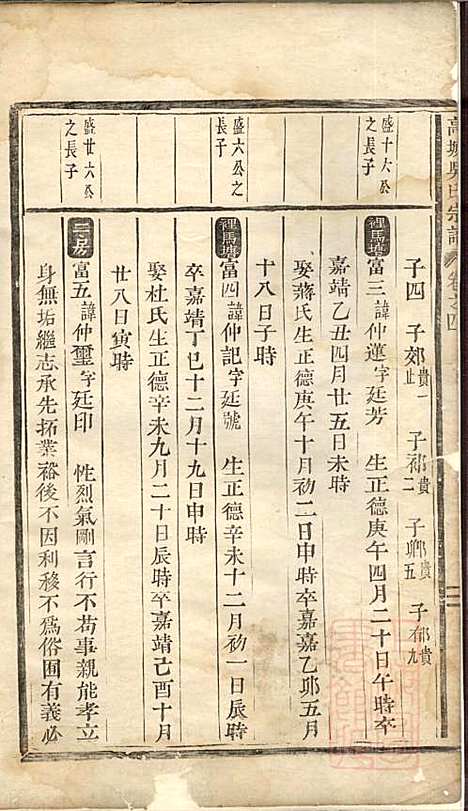 高塘吳氏宗譜 卷之四
子四 子郊貴一止 子祁貴二 子鄉貴五 子郁貴九
盛十六公之長子
裡馬塘 富三 諱仲蓮字廷芳 生正德庚午四月二十日午時卒
嘉靖乙丑四月廿五日未時
娶蔣氏生正德庚午十月初二日申時卒嘉嘉乙丣五月
十八日子時
盛六公之長子
裡馬塘 富四 諱仲記字廷號 生正德辛未十二月初一日辰時
卒嘉靖丁巳十二月十九日申時
娶杜氏生正德辛未九月二十日辰時卒嘉靖己酉十月
廿八日寅時
盛廿六公之長子
二房 富五 諱仲璽字廷印 性烈氣剛言行不苟事親能孝立
身無垢繼志承先拓業裕後不因利移不爲俗囿有義必